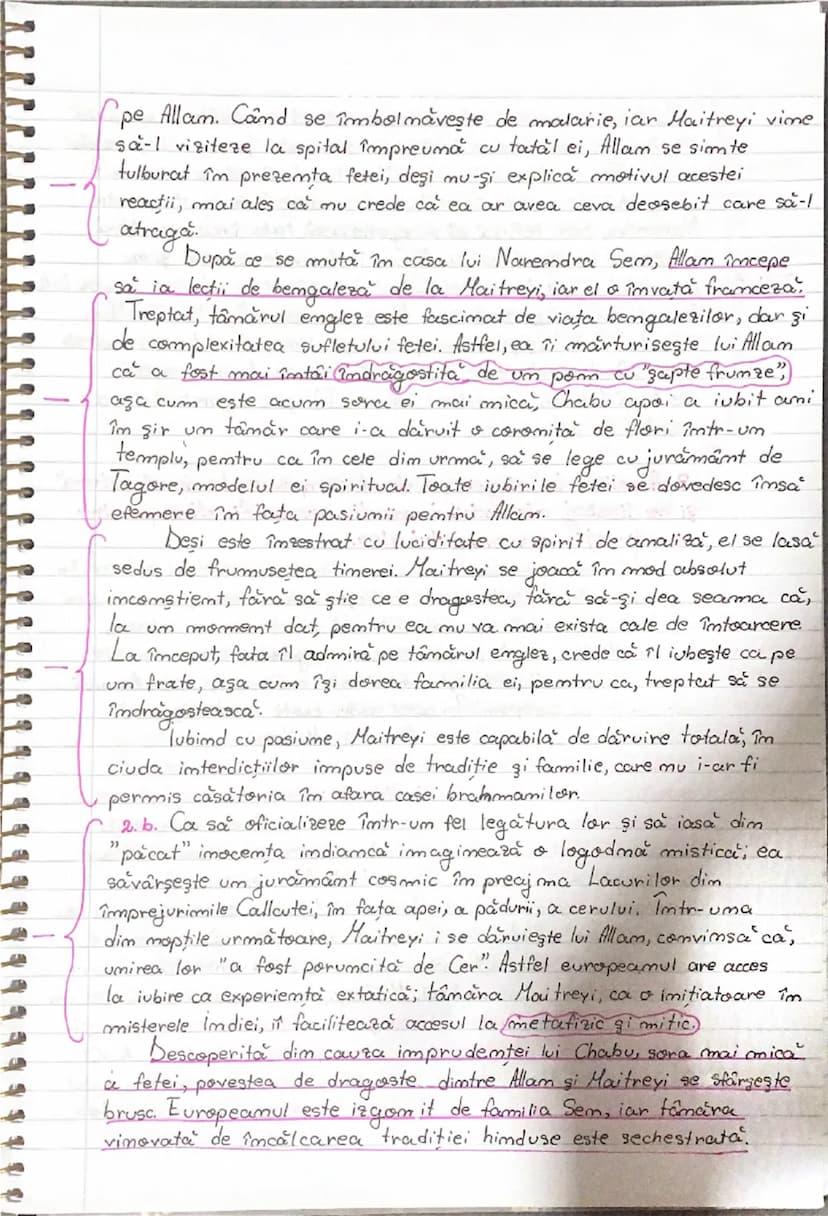 pe Allam. Când se îmbolnăvește de malarie, iar Maitreyi vine
să-l viziteze la spital împreună cu tatăl ei, Allam se simte
tulburat în prezența fetei, deși nu-și explică motivul acestei
reacții, mai ales că nu crede că ea ar avea ceva deosebit care să-l
atragă.
După ce se mută în casa lui Narendra Sen, Allam începe
să ia lecții de bengaleză de la Maitreyi, iar el o învață franceză.
Treptat, tânărul englez este fascinat de viața bengalezilor, dar și
de complexitatea sufletului fetei. Astfel, ea îi mărturisește lui Allam
că a fost mai întâi îndrăgostită de un pom cu "șapte frunze",
așa cum este acum sora ei mai mică, Chabu apoi a iubit ani
în șir un tânăr care i-a dăruit o coroniță de flori într-un
templu, pentru ca în cele din urmă, să se lege cu jurământ de
Tagore, modelul ei spiritual. Toate iubirile fetei se dovedesc însă
efemere în fața pasiunii pentru Allam.
Deși este înzestrat cu luciditate cu spirit de analiză, el se lasă
sedus de frumusețea tinerei. Maitreyi se joacă în mod absolut
inconștient, fără să știe ce e dragostea, fără să-și dea seama că,
la un moment dat, pentru ea nu va mai exista cale de întoarcere.
La început, fata îl admiră pe tânărul englez, crede că îl iubește ca pe
un frate, așa cum își dorea familia ei, pentru ca, treptat să se
îndrăgostească.
Iubind cu pasiune, Maitreyi este capabilă de dăruire totală, în
ciuda interdicțiilor impuse de tradiție și familie, care nu i-ar fi
permis căsătoria în afara casei brahmanilor.
2.b. Ca să oficializeze într-un fel legătura lor și să iasă din
"păcat" inocenta indiancă imaginează o logodnă mistică; ea
săvârșește un jurământ cosmic în preajma Lacurilor din
împrejurimile Callcutei, în fața apei, a pădurii, a cerului. Într-una
din nopțile următoare, Maitreyi i se dăruiește lui Allam, convinsă că,
unirea lor "a fost poruncită de Cer". Astfel europeanul are acces
la iubire ca experiență extatică; tânăra Maitreyi, ca o inițiatoare în
misterele Indiei, îi facilitează accesul la metafizic și mitic.
Descoperită din cauza imprudenței lui Chabu, sora mai mică
a fetei, povestea de dragoste dintre Allam și Maitreyi se sfârșește
brusc. Europeanul este izgonit de familia Sen, iar tânăra
vinovată de încălcarea tradiției hinduse este sechestrată.